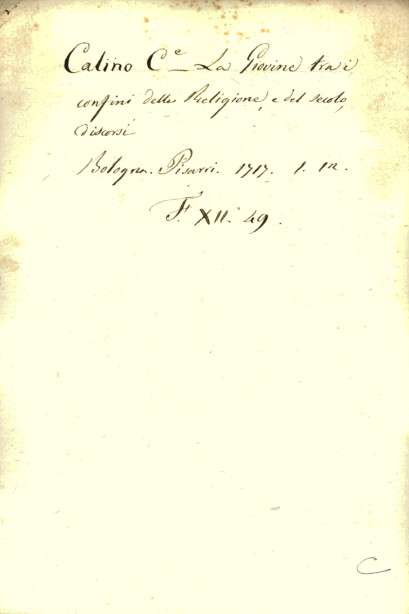 Calino C.e - La Giovine tra i
confini della Religione, e del secolo,
discorsi
Bologna. Pisarri. 1717. 1. 12.
F. XII. 49.
C